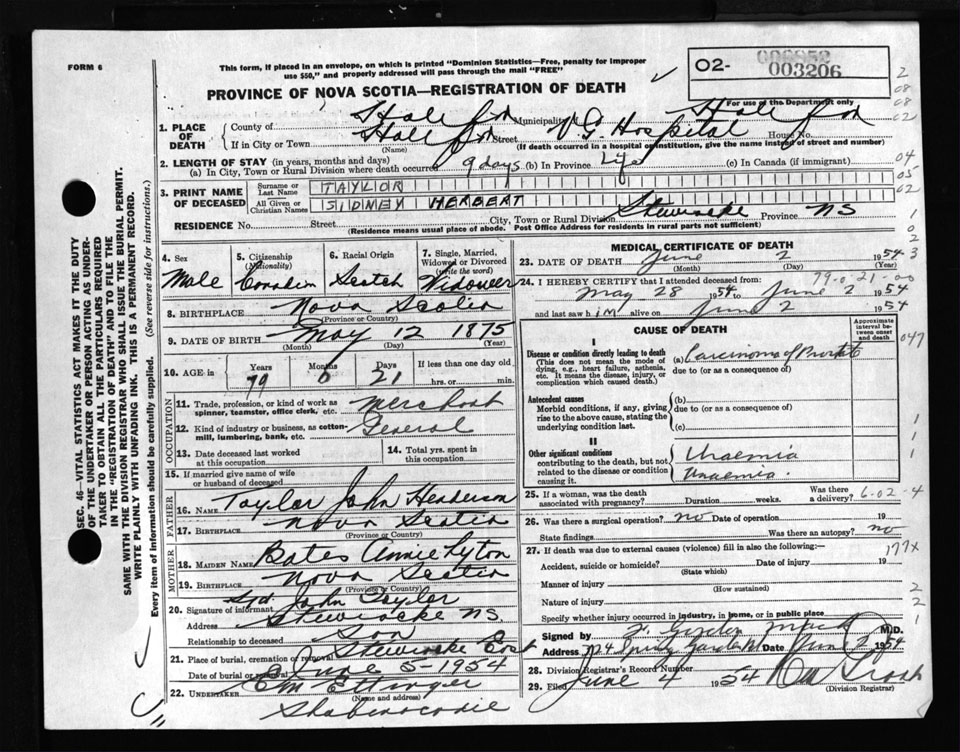 FORM 6
This form, if placed in an envelope, on which is printed "Dominion Statistics—Free, penalty for improper
use $50," and properly addressed will pass through the mail "FREE"
PROVINCE OF NOVA SCOTIA—REGISTRATION OF DEATH
O2- 003206
For use of the Department only
1. PLACE OF DEATH
County of Halifax Municipality of Halifax
If in City or Town Halifax Street V.G. Hospital House No.
(Name) (If death occurred in a hospital or institution, give the name instead of street and number)
2. LENGTH OF STAY (in years, months and days)
(a) In City, Town or Rural Division where death occurred 9 days (b) In Province Life (c) In Canada (if immigrant)
3. PRINT NAME OF DECEASED
Surname or Last Name TAYLOR
All Given or Christian Names SIDNEY HERBERT
RESIDENCE No. Street City, Town or Rural Division Stewiacke Province NS
(Residence means usual place of abode. Post Office Address for residents in rural parts not sufficient)
4. Sex Male
5. Citizenship (Nationality) Canadian
6. Racial Origin Scotch
7. Single, Married, Widowed or Divorced (write the word) Widower
8. BIRTHPLACE Nova Scotia
(Province or Country)
9. DATE OF BIRTH May 12 1875
(Month) (Date) (Year)
10. AGE in Years 79 Months 0 Days 21 If less than one day old hrs. or min.
OCCUPATION
11. Trade, profession, or kind of work as spinner, teamster, office clerk, etc. Merchant
12. Kind of industry or business, as cotton-mill, lumbering, bank, etc. General
13. Date deceased last worked at this occupation
14. Total yrs. spent in this occupation
15. If married give name of wife or husband of deceased
FATHER
16. NAME Taylor John Henderson
17. BIRTHPLACE Nova Scotia
(Province or Country)
MOTHER
18. MAIDEN NAME Bates Annie Lyton
19. BIRTHPLACE Nova Scotia
(Province or Country)
20. Signature of informant Sgd. John Taylor
Address Stewiacke NS.
Relationship to deceased Son
21. Place of burial, cremation or removal Stewiacke East
Date of burial or removal June 5-1954
22. UNDERTAKER Ettinger
(Name and address)
Shubenacadie
MEDICAL CERTIFICATE OF DEATH
23. DATE OF DEATH June 2 1954
(Month) (Day) (Year)
79-0-21-00
24. I HEREBY CERTIFY that I attended deceased from:
May 28 1954 to June 2 1954
and last saw him alive on June 2 1954
CAUSE OF DEATH
Approximate interval between onset and death
I
Disease or condition directly leading to death (a) Carcinoma of Prostate
(This does not mean the mode of dying, e.g., heart failure, asthenia, etc. It means the disease, injury, or complication which caused death.) due to (or as a consequence of)
Antecedent causes (b)
Morbid conditions, if any, giving rise to the above cause, stating the underlying condition last. due to (or as a consequence of)
(c)
II
Other significant conditions
contributing to the death, but not related to the disease or condition causing it.
Uraemia
25. If a woman, was the death associated with pregnancy? Duration weeks. Was there a delivery? 6-02-4
26. Was there a surgical operation? no Date of operation 19
State findings Was there an autopsy? no
27. If death was due to external causes (violence) fill in also the following:— 177x
Accident, suicide or homicide? Date of injury 19
(State which)
Manner of injury
(How sustained)
Nature of injury
Specify whether injury occurred in industry, in home, or in public place
Signed by Gordon Mack M.D.
Address Spring Garden Rd Date June 2 1954
28. Division Registrar's Record Number
29. Filed June 4 1954
(Division Registrar)
SEC. 46—VITAL STATISTICS ACT MAKES IT THE DUTY
OF THE UNDERTAKER OR PERSON ACTING AS UNDER-
TAKER TO OBTAIN ALL THE PARTICULARS REQUIRED
IN THE "REGISTRATION OF DEATH" AND TO FILE THE
SAME WITH THE DIVISION REGISTRAR WHO SHALL ISSUE THE BURIAL PERMIT.
WRITE PLAINLY WITH UNFADING INK. THIS IS A PERMANENT RECORD.
Every item of information should be carefully supplied. (See reverse side for instructions.)
2
08
08
02
04
05
02
1
0
2
3
047
1
1
1
1
2
2
1